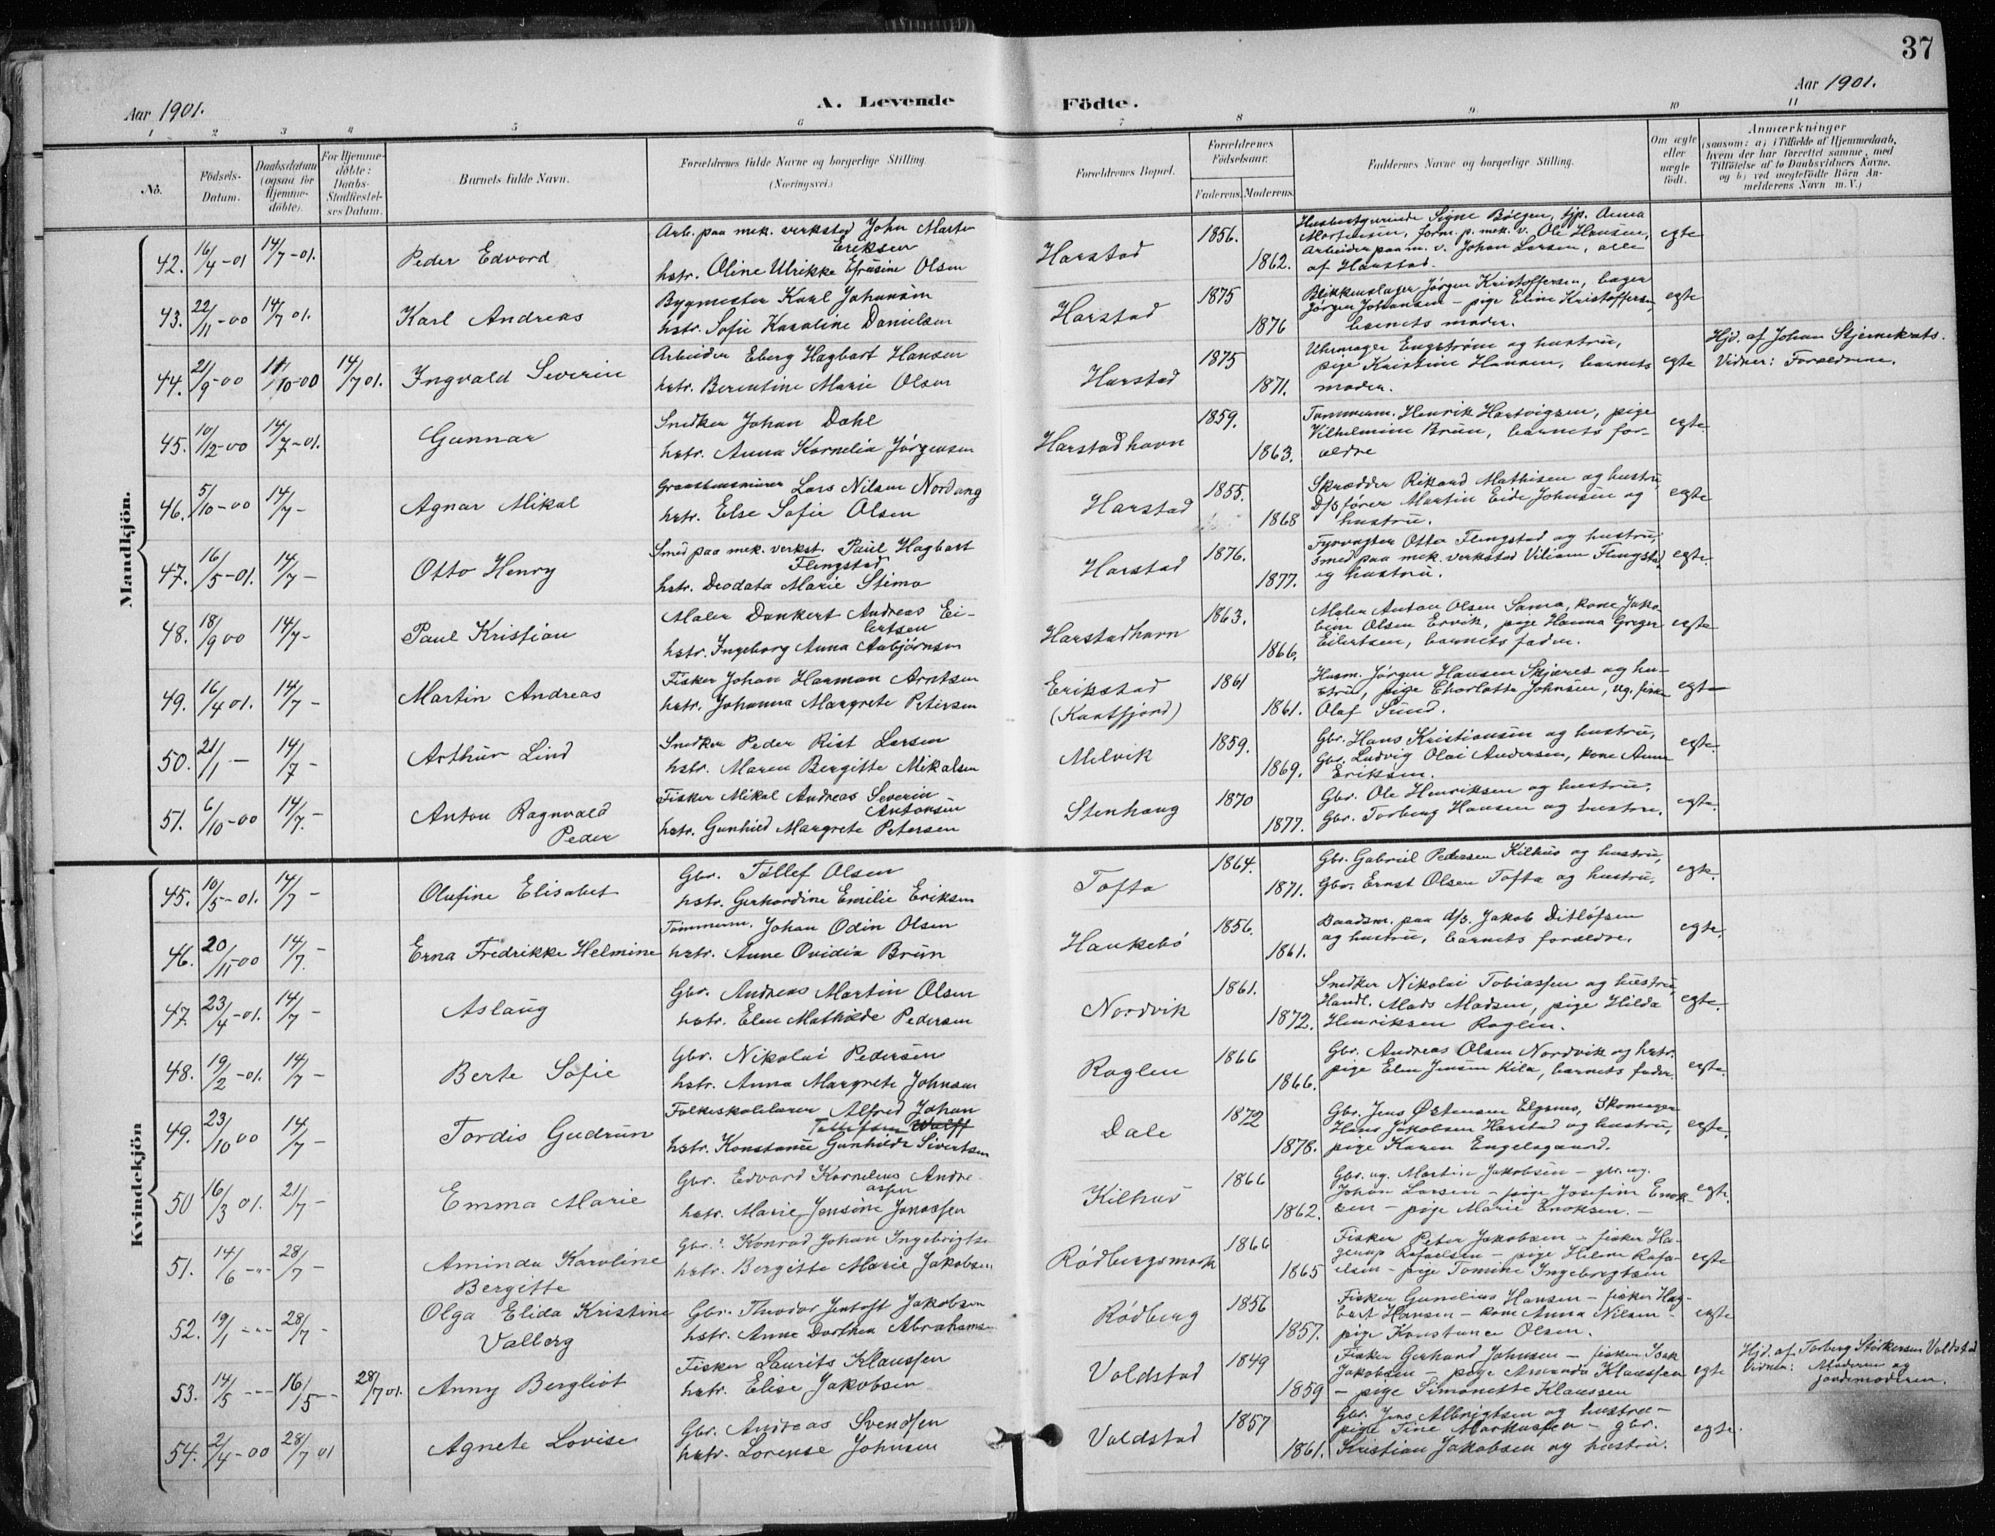 37
Aar 1901.
A. Levende Födte.
Aar 1901.
1 2 3 4 5 6 7 8 9 10 11
No.
Födsels-Datum.
Daabsdatum (ogsaa for Hjemmedöbte).
For Hjemmedöbte: Daabs-Stadfæstelses Datum.
Barnets fulde Navn.
Forældrenes fulde Navne og borgerlige Stilling.
(Næringsvei.)
Forældrenes Bopæl.
Forældrenes Födselsaar.
Faderens. Moderens.
Faddernes Navne og borgerlige Stilling.
Om ægte eller uægte födt.
Anmærkninger
(saasom: a) i Tilfælde af Hjemmedaab, hvem der har forrettet samme, med Tilföielse af to Daabsvidners Navne. og b) ved uægtefödte Börn Anmelderens Navn m. V.)
Mandkjön.
42. 16/4-01 14/7-01. Peder Edvard
Arb. paa mek. verksted John Martin Eriksen
hstr. Oline Ulrikke Efrusine Olsen
Harstad 1856. 1862.
Signe Bølgen, tjp. Anna
Mortensen, form. p. mek. v. Ole Hansen,
Arbeider paa m. v. Johan Larsen, alle
af Harstad.
egte
43. 22/11-00 14/7 01. Karl Andreas
Bygmester Karl Johansen
hstr. Sofie Karoline Danielsen
Harstad 1875 1876
Blikkenslager Jørgen Kristoffersen, bager
Jørgen Johansen - pige Eline Kristoffersen,
barnets moder.
egte
44. 21/9-00 11/10-00 14/7 01. Ingvald Severin
Arbeider Eberg Hagbart Hansen
hstr. Berentine Marie Olsen
Harstad 1875 1871.
Uhrmager Engstrøm og hustru,
pige Kristine Hansen, barnets
moder.
egte
Hjd. af Johan Stjernekrats.
Vidner: Forældrene.
45. 10/12-00 14/7-01. Gunnar
Snedker Johan Dahl
hstr. Anna Kornelia Jørgensen
Harstadhavn 1859. 1863.
Tømmerm. Henrik Hartvigsen, pige
Vilhelmine Brun, barnets for-
ældre
egte
46. 5/10-00 14/7- Agnar Mikal
Graastensmurer Lars Nilsen Nordang
hstr. Else Sofie Olsen
Harstad 1855. 1868
Skrædder Rikard Mathisen og hustru,
D/s fører Martin Eide Johnsen og
hustru.
egte
47. 16/5-01. 14/7- Otto Henry
Smed paa mek. verkst. Paul Hagbart Flengstad
hstr. Deodata Marie Stimo
Harstad 1876. 1877.
Fyrvogter Otto Flengstad og hustru,
smed paa mek. verksted Viliam Flengstad
og hustru.
egte.
48. 18/9 00 14/7- Paul Kristian
Maler Dankert Andreas Ei-
lertsen
hstr. Ingeborg Anna Asbjørnsen
Harstadhavn 1863. 1866.
Maler Anton Olsen Sama, kone Jako-
bine Olsen Ervik, pige Hanna Greger
Eilertsen, barnets fader.
egte
49. 16/4 01. 14/7- Martin Andreas
Fisker Johan Harman Arntsen
hstr. Johanna Margrete Petersen
Erikstad
(Kastfjord) 1861 1861.
Husm. Jørgen Hansen Skjæres og hu-
stru, pige Charlotte Johnsen, ug. fisker
Olaf Sund.
egte
50. 21/1 - 14/7 - Arthur Lind
Snedker Peder Rist Larsen
hstr. Maren Bergitte Mikalsen
Melvik 1859. 1869.
Gbr. Hans Kristiansen og hustru,
Gbr. Ludvig Olai Andersen, kone Anna
Eriksen.
egte
51. 6/10-00 14/7.- Anton Ragnvald
Peder
Fisker Mikal Andreas Severin
Antonsen
hstr. Gunhild Margrete Petersen
Stenhaug 1870 1877.
Gbr. Ole Henriksen og hustru,
Gbr. Torberg Hansen og hustru.
egte.
Kvindekjön
45. 10/5-01. 14/7- Olufine Elisabet
Gbr. Tollef Olsen
hstr. Gerhardine Emilie Eriksen
Tofta 1864. 1871.
Gbr. Gabriel Pedersen Kilhus og hustru,
Gbr. Ernst Olsen Tofta og hustru.
egte.
46. 20/11-00 14/7.- Erna Fredrikke Helmine
Tømmerm. Johan Odin Olsen
hstr. Anne Ovidia Brun
Haukebø 1856. 1861.
Baadsm. paa d/s. Jakob Ditlefsen
og hustru, barnets forældre.
egte.
47. 23/4-01. 14/7- Aslaug
Gbr. Andreas Martin Olsen
hstr. Elen Mathilde Pedersen
Nordvik 1861. 1872.
Snedker Nikolai Tobiassen og hustru,
Handl. Mads Madsen, pige Hilda
Henriksen Roglen.
egte.
48. 19/2-01. 14/7- Berte Sofie
Gbr. Nikolai Pedersen
hstr. Anna Margrete Johnsen
Roglen 1866 1866.
Gbr. Andreas Olsen Nordvik og hstr.
pige Elen Jensen Kila, barnets fader.
egte.
49. 23/10 00 14/7- Tordis Gudrun
Folkeskolelærer Alfred Johan
Tollefsen Wulff
hstr. Konstance Gunhilde Sivertsen
Dale 1872 1878.
Gbr. Jens Østensen Elgsnes, Skomager
Hans Jakobsen Harstad og hustru,
pige Karen Engelsgaard.
egte.
50 16/3 01. 21/7- Emma Marie
Gbr. Edvard Kornelius Andre-
assen
hstr. Marie Jensine Jonassen
Kilhus 1866 1862.
Gbr. ug. Martin Jakobsen - gbr. ug.
Johan Larsen - pige Josefine Enok-
sen - pige Marie Enoksen. -
egte.
51. 14/6 -"- 28/7- Aminda Karoline
Bergitte
Gbr. Konrad Johan Ingebrigtse
hstr. Bergitte Marie Jakobsen
Rødbergsmark 1866 1865
Fisker Peter Jakobsen - fisker Ha-
gerup Rafaelsen - pige Hilda Rafa-
elsen - pige Tomine Ingebrigtsen
egte
52. 19/1 -"- 28/7- Olga Elida Kristine
Valborg
Gbr. Theodor Jentoft Jakobsen
hstr. Anne Dorthea Abrahamse
Rødberg 1856 1857.
Fisker Gunelius Hansen - fisker Hag-
bart Hansen - kone Anna Nilsen -
pige Konstance Olsen.
egte
53. 14/5 -"- 16/5 -"- 28/7 01. Anny Bergliot
Fisker Laurits Klaussen
hstr. Elise Jakobsen
Voldstad 1849 1859
Fisker Gerhard Johnsen - fisker Isak
Jakobsen - pige Amanda Klaussen
- pige Simonette Klaussen
egte
Hjd. af Torberg Størkersen Voldstad
Vidner: Moderen og
jordemoderen.
54. 2/4-00 28/7 01 Agnete Lovise
Gbr. Andreas Svendsen
hstr. Lorense Johnsen
Voldstad 1857 1861.
Gbr. Jens Albrigtsen og hustru -
pige Tine Markussen - gbr.
Kristian Jakobsen og hustru.
egte.